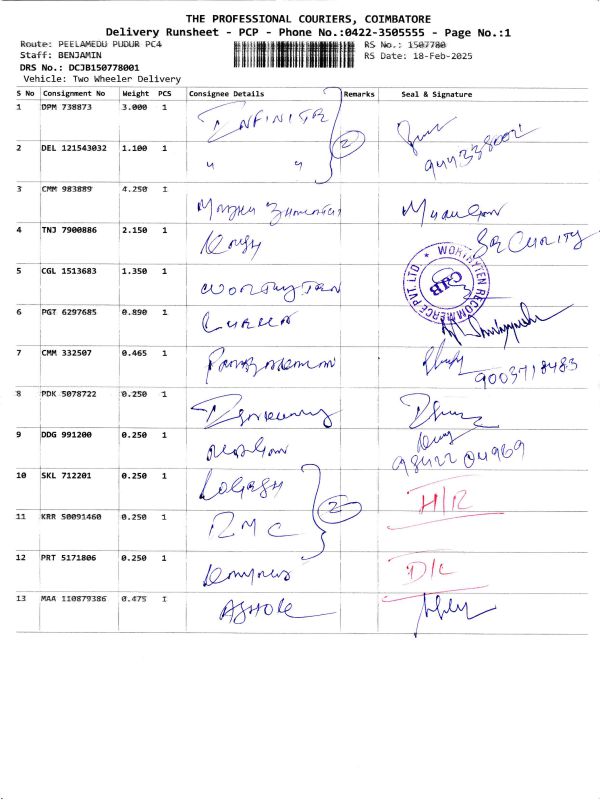 THE PROFESSIONAL COURIERS, COIMBATORE
Delivery Runsheet - PCP - Phone No.:0422-3505555 - Page No.:1
Route: PEELAMEDU PUDUR PC4 RS No.: 1507780
Staff: BENJAMIN RS Date: 18-Feb-2025
DRS No.: DCJB150778001
Vehicle: Two Wheeler Delivery
S No Consignment No Weight PCS Consignee Details Remarks Seal & Signature
1 DPM 738873 3.000 1 INFINITE
2
2 DEL 121543032 1.100 1 " "
3 CMM 983889 4.250 1
4 TNJ 7900886 2.150 1 SECURITY
WORTHYTEN RECOMMERCE PVT LTD.
5 CGL 1513683 1.350 1
6 PGT 6297685 0.890 1
7 CMM 332507 0.465 1
9003718483
8 PDK 5078722 0.250 1
9 DDG 991200 0.250 1
9842204969
10 SKL 712201 0.250 1 LOGESH H/R
2
11 KRR 50091460 0.250 1 RMC
12 PRT 5171806 0.250 1 D/L
13 MAA 110879386 0.475 1 ASHOK